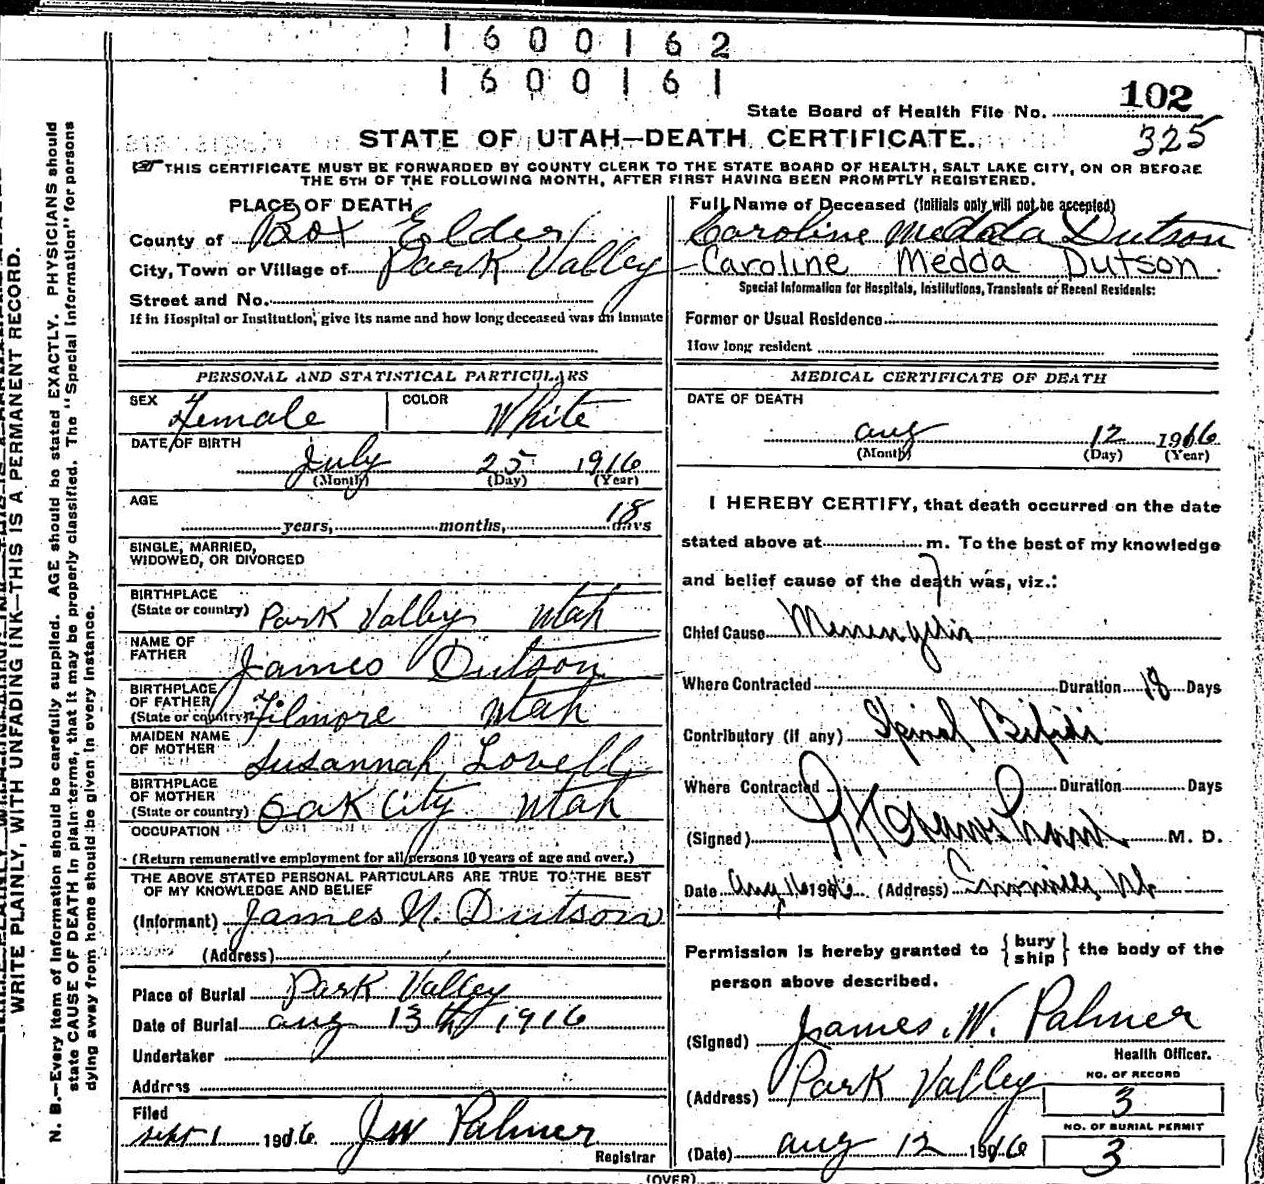 1600162
1600161
State Board of Health File No. 102
325
STATE OF UTAH—DEATH CERTIFICATE.
THIS CERTIFICATE MUST BE FORWARDED BY COUNTY CLERK TO THE STATE BOARD OF HEALTH, SALT LAKE CITY, ON OR BEFORE
THE 5TH OF THE FOLLOWING MONTH, AFTER FIRST HAVING BEEN PROMPTLY REGISTERED.
WRITE PLAINLY, WITH UNFADING INK—THIS IS A PERMANENT RECORD.
N. B.—Every item of information should be carefully supplied. AGE should be stated EXACTLY. PHYSICIANS should
state CAUSE OF DEATH in plain terms, that it may be properly classified. The "Special Information" for persons
dying away from home should be given in every instance.
PLACE OF DEATH
County of Box Elder
City, Town or Village of Park Valley
Street and No.
If in Hospital or Institution, give its name and how long deceased was an inmate
PERSONAL AND STATISTICAL PARTICULARS
SEX Female COLOR White
DATE OF BIRTH
July 25 1916
(Month) (Day) (Year)
AGE
years, months, 18 days
SINGLE, MARRIED,
WIDOWED, OR DIVORCED
BIRTHPLACE
(State or country) Park Valley Utah
NAME OF
FATHER James Dutson
BIRTHPLACE
OF FATHER
(State or country) Filmore Utah
MAIDEN NAME
OF MOTHER Susannah Lovell
BIRTHPLACE
OF MOTHER
(State or country) Oak City Utah
OCCUPATION
(Return remunerative employment for all persons 10 years of age and over.)
THE ABOVE STATED PERSONAL PARTICULARS ARE TRUE TO THE BEST
OF MY KNOWLEDGE AND BELIEF
(Informant) James N. Dutson
(Address)
Place of Burial Park Valley
Date of Burial aug 13th 1916
Undertaker
Address
Filed
sept 1 1916 J W Palmer
Registrar
Full Name of Deceased (Initials only will not be accepted)
Caroline Medda Dutson
Caroline Medda Dutson
Special Information for Hospitals, Institutions, Transients or Recent Residents:
Former or Usual Residence
How long resident
MEDICAL CERTIFICATE OF DEATH
DATE OF DEATH
aug 12 1916
(Month) (Day) (Year)
I HEREBY CERTIFY, that death occurred on the date
stated above at m. To the best of my knowledge
and belief cause of the death was, viz.:
Chief Cause
Where Contracted Duration 18 Days
Contributory (if any) Spinal Bifidi
Where Contracted Duration Days
(Signed) M. D.
Date Aug 16 1916 (Address)
Permission is hereby granted to { bury
ship } the body of the
person above described.
(Signed) James W. Palmer
Health Officer.
(Address) Park Valley
NO. OF RECORD
3
NO. OF BURIAL PERMIT
3
(Date) aug 12 1916
(OVER)